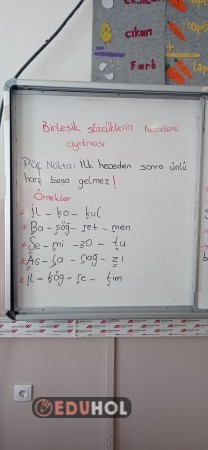 çıkan
Fark
Birleşik sözcüklerin hecelere
ayrılması
Püf Nokta: İlk heceden sonra ünlü
harf başa gelmez!
Örnekler
* İl - ko - kul
* Ba - şöğ - ret - men
* Se - mi - zo - tu
* As - la - nağ - zı
* İl - köğ - re - tim
EDUHOL